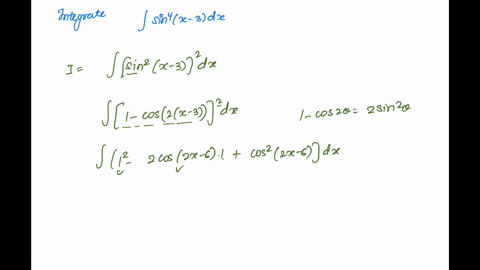 Integrate ∫ sin⁴(x-3)dx
I = ∫ [sin²(x-3)]² dx
∫ [1 - cos(2(x-3))]² dx 1 - cos2θ = 2sin²θ
∫ (1² - 2cos(2x-6)·1 + cos²(2x-6)] dx